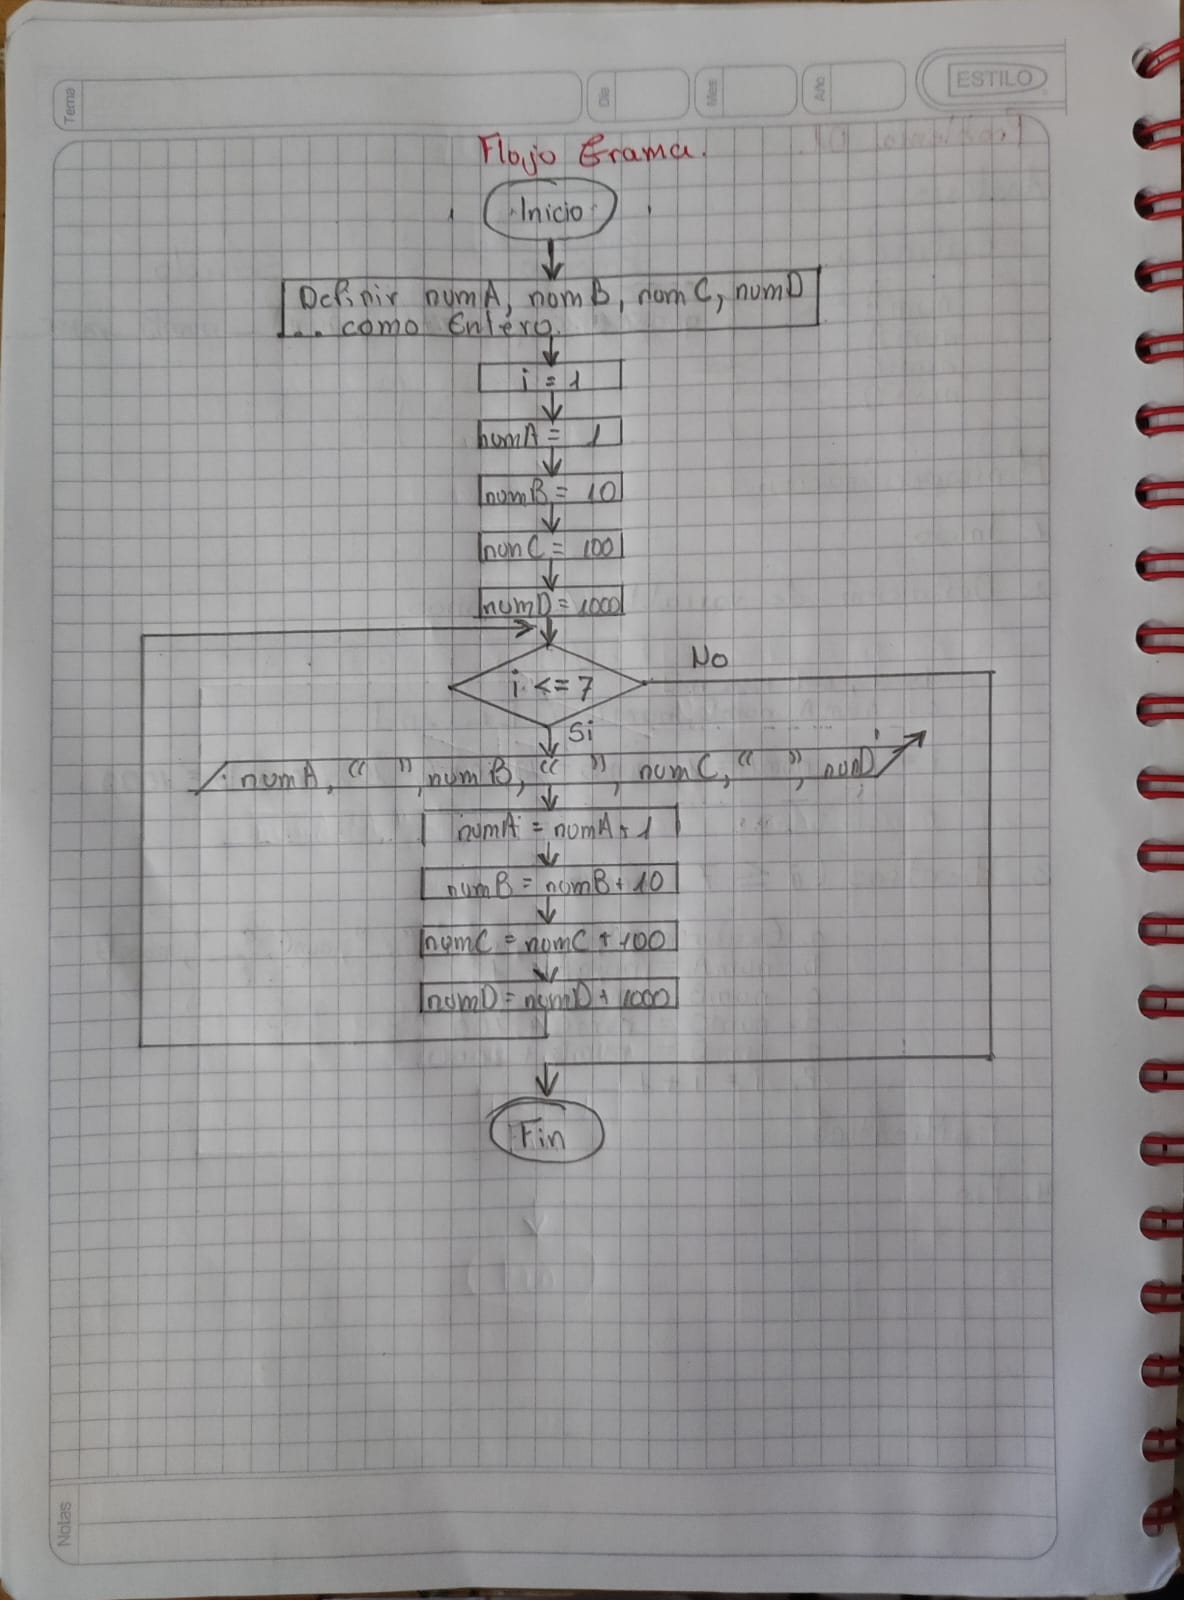 Tema
Dia
Mes
Año
ESTILO
Flujo Grama.
Inicio
Definir numA, numB, numC, numD
.. como Entero.
i = 1
numA = 1
numB = 10
numC = 100
numD = 1000
i <= 7
No
Si
numA, “ ”, numB, “ ”, numC, “ ”, numD
numA = numA + 1
numB = numB + 10
numC = numC + 100
numD = numD + 1000
Fin
Notas